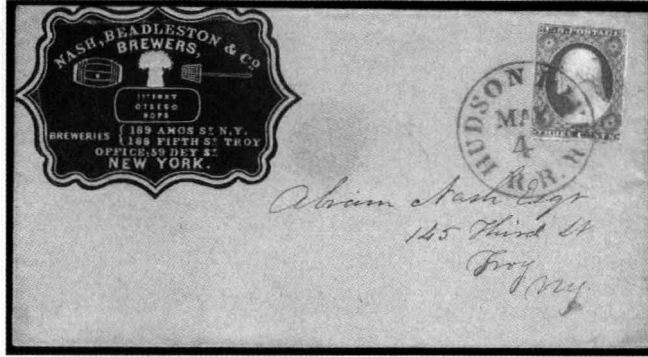 NASH, BEADLESTON & Co
BREWERS,
1st SORT
OTSEGO
HOPS
BREWERIES { 189 AMOS St N.Y.
188 FIFTH St TROY
OFFICE, 59 DEY St
NEW YORK.
U.S. POSTAGE
THREE CENTS
HUDSON RIV.
MAY
4
R.R.
Abram Nash Esqr
145 Third St
Troy
NY.